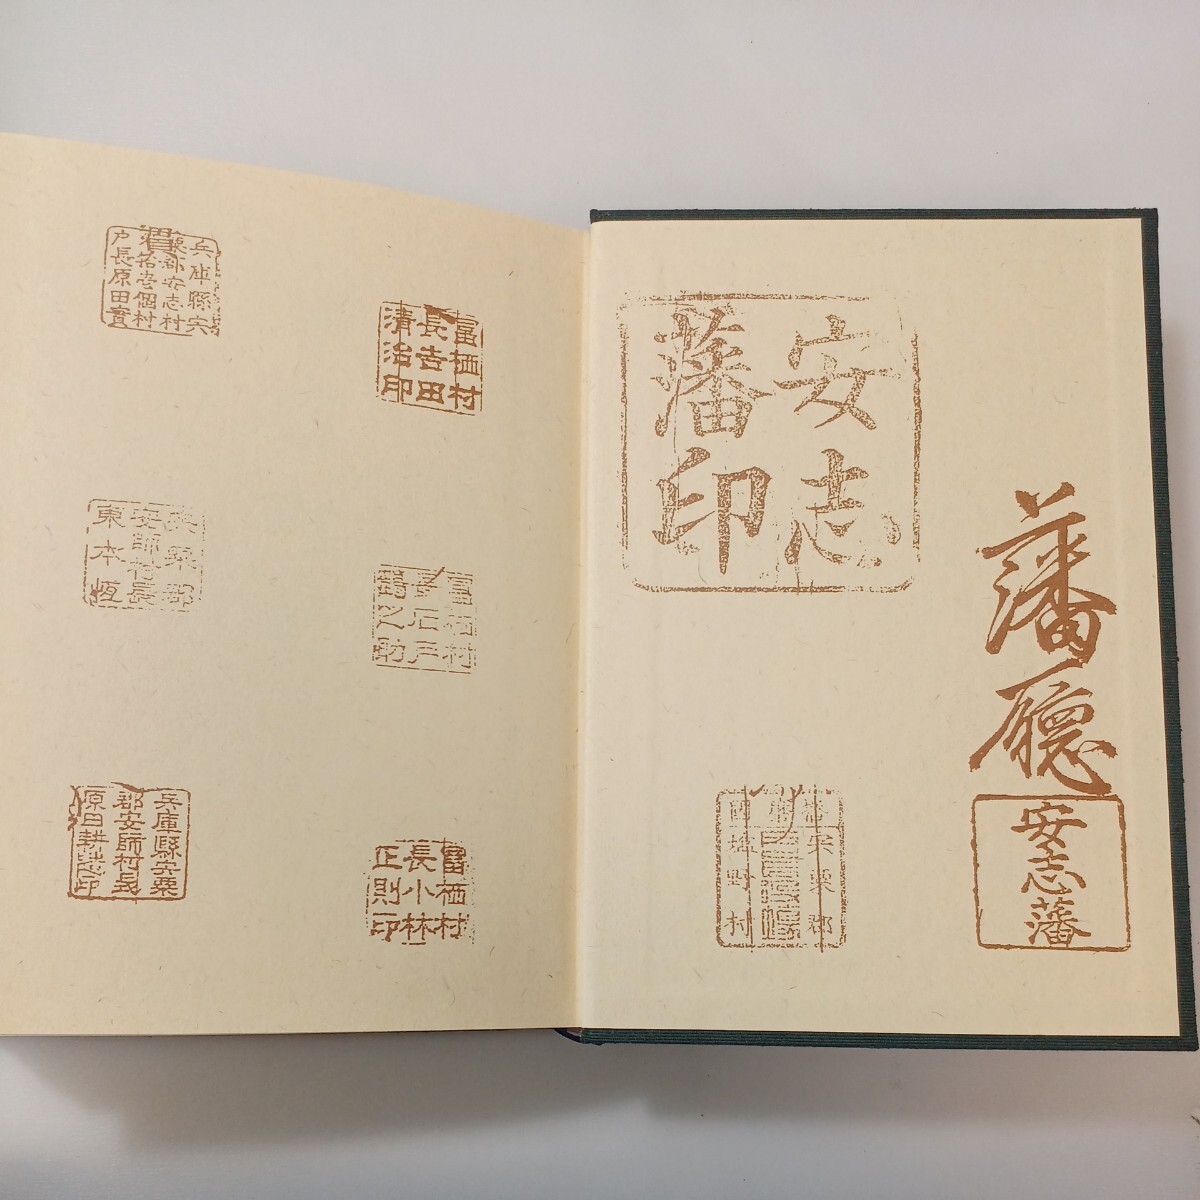 安志
藩印
藩廳
安志藩
宍粟郡
塩野村
富栖村
長吉田
清治印
富栖村
長石戸
鶴之助
富栖村
長小林
正則印
兵庫縣宍
粟郡安志村
外拾壱個村
戸長原田
宍粟郡
安師村長
東本恆
兵庫縣宍粟
郡安師村長
原田耕志印